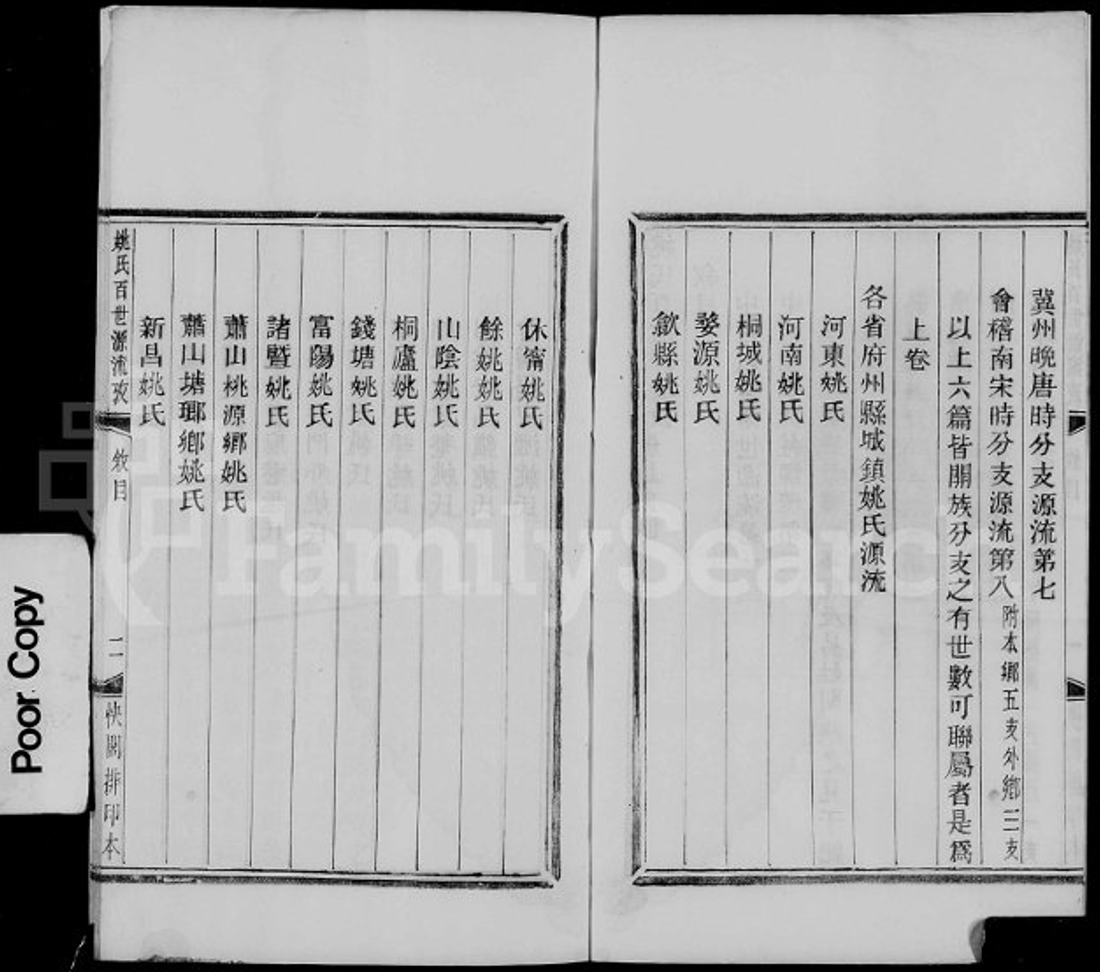 冀州晚唐時分支源流第七
會稽南宋時分支源流第八 附本鄉五支外鄉三支
以上六篇皆開族分支之有世數可聯屬者是爲
上卷
各省府州縣城鎮姚氏源流
河東姚氏
河南姚氏
桐城姚氏
婺源姚氏
歙縣姚氏
休甯姚氏
餘姚姚氏
山陰姚氏
桐廬姚氏
錢塘姚氏
富陽姚氏
諸暨姚氏
蕭山桃源鄉姚氏
蕭山塘瑯鄉姚氏
新昌姚氏
姚氏百世源流攷
敘目
二
快閣排印本
Poor Copy
FamilySearch